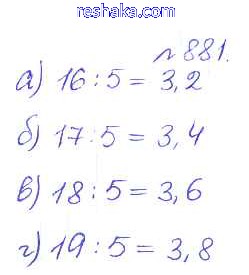 reshaka.com
№881.
а) 16 : 5 = 3,2
б) 17 : 5 = 3,4
в) 18 : 5 = 3,6
г) 19 : 5 = 3,8